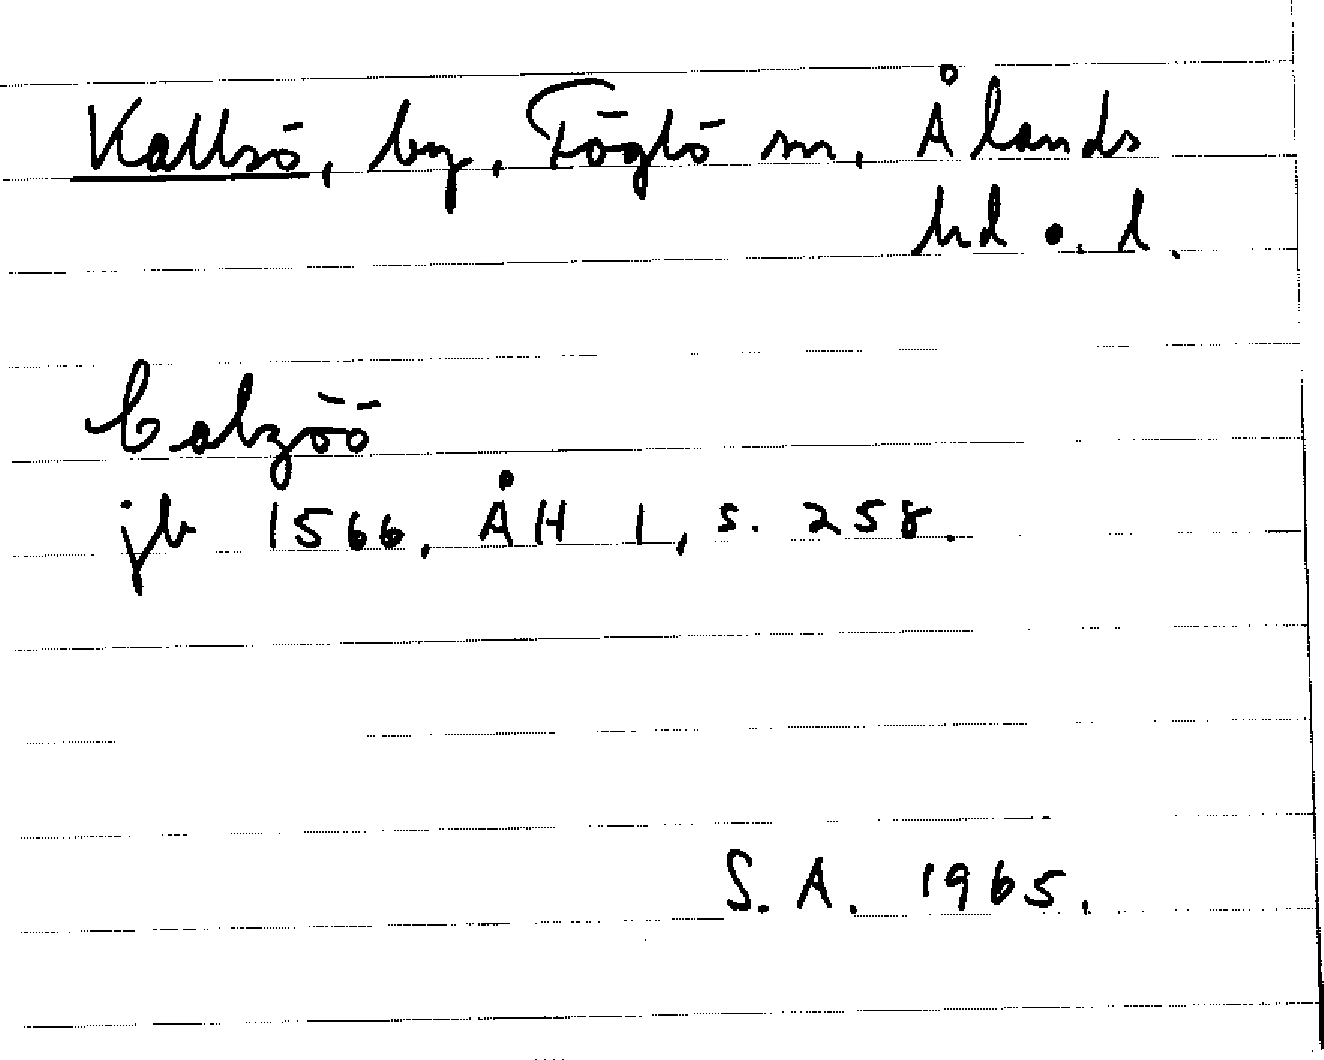 Kallsö, by, Föglö sn, Ålands
hd o. l.
Calzöö
jb 1566, ÅH 1, s. 258.
S. A. 1965.